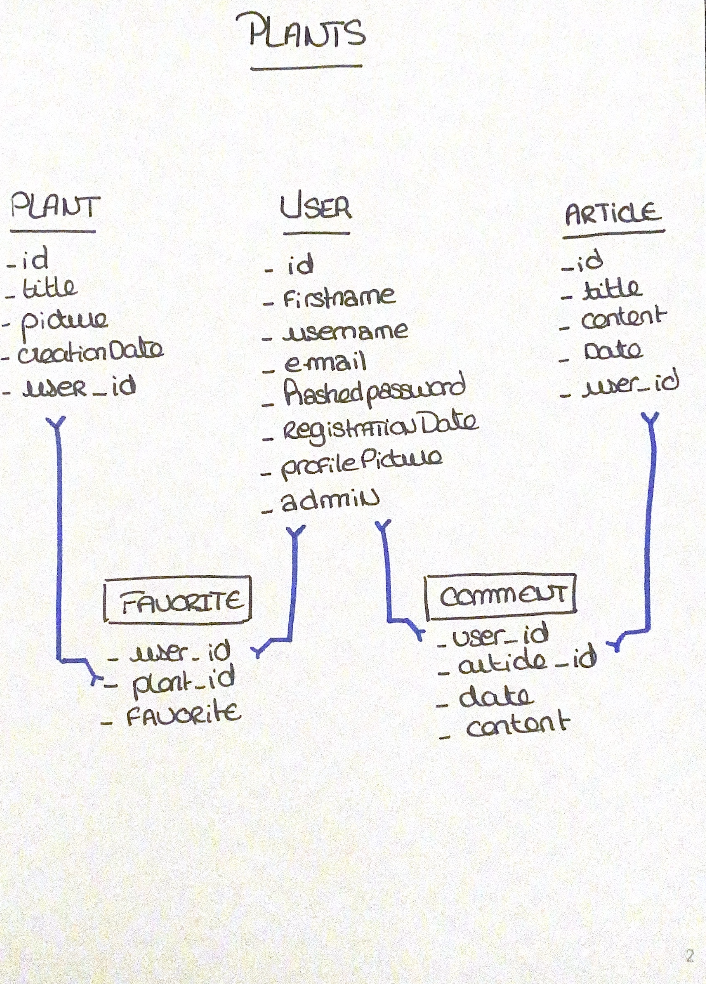 PLANTS
PLANT
- id
- title
- picture
- creationDate
- user_id
USER
- id
- firstname
- username
- e-mail
- Hashedpassword
- RegistrationDate
- profilePicture
- admin
ARTiclE
- id
- title
- content
- Date
- user_id
FAVORITE
- user_id
- plant_id
- FAVORite
COMMENT
- user_id
- article_id
- date
- content
2